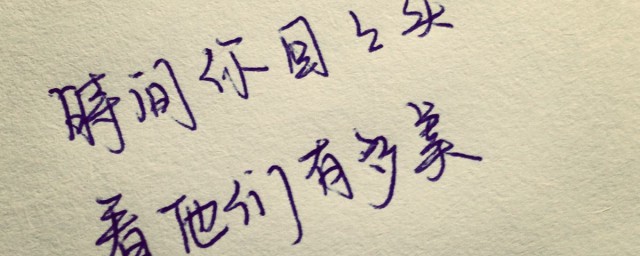 時间你回々头
看他们有多美